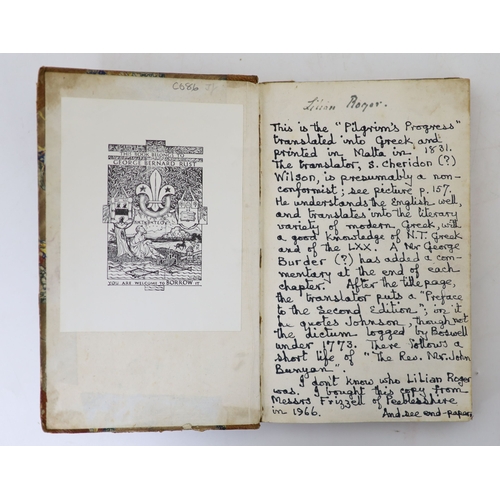 C586
THIS BOOK BELONGS TO
GEORGE BERNARD RUST
YOU ARE WELCOME TO BORROW IT
Lilian Roger.
This is the "Pilgrim's Progress"
translated into Greek and
printed in Malta in 1831.
The translator, S. Cheridon (?)
Wilson, is presumably a non-
conformist; see picture p. 157.
He understands the English well,
and translates into the literary
variety of modern Greek, with
a good knowledge of N.T. Greek
and of the LXX. A Mr George
Burder (?) has added a com-
mentary at the end of each
chapter. After the title page,
the translator puts a "Preface
to the Second Edition"; on it
he quotes Johnson, though not
the dictum logged by Boswell
under 1773. There follows a
short life of "The Rev. Mr. John
Bunyan".
I don't know who Lilian Roger
was. I bought this copy from
Messrs Frizzell of Peeblesshire
in 1966. And see end-paper